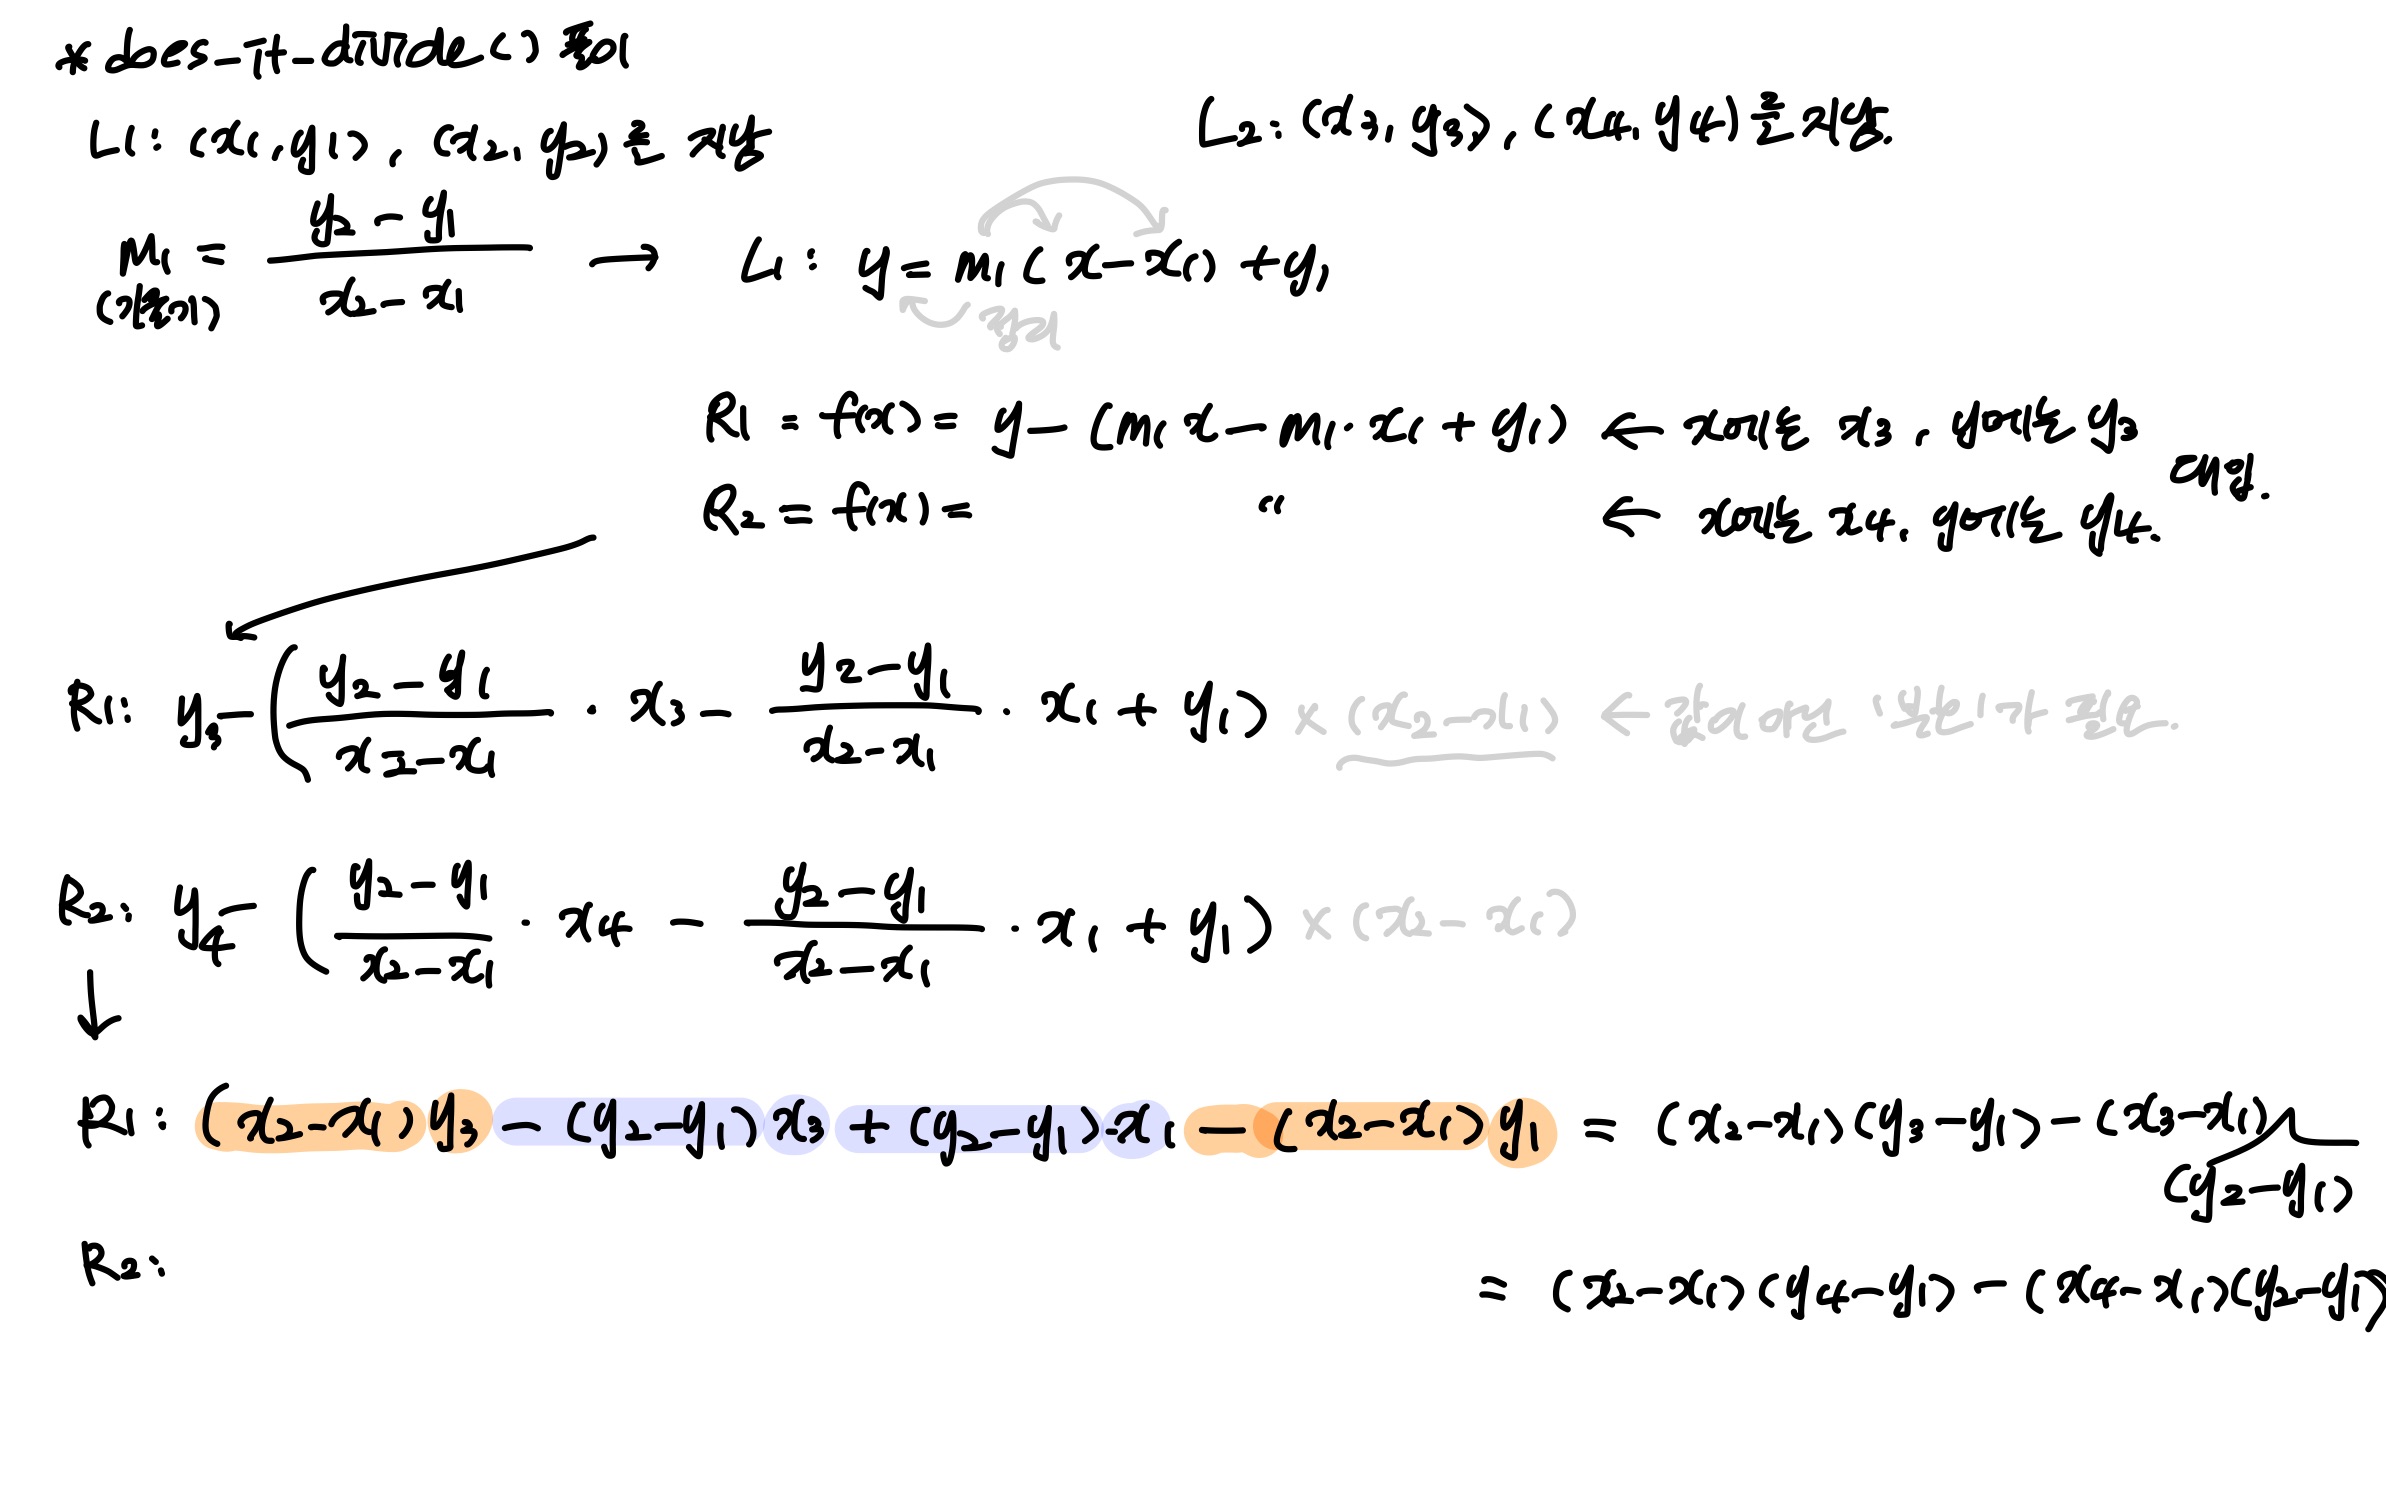 * does_it_divide() 풀이
L1: (x1, y1), (x2, y2)를 지남
L2: (x3, y3), (x4, y4)를 지남.
m1 = (y2 - y1) / (x2 - x1) → L1: y = m1(x - x1) + y1
(기울기)
R1 = f(x) = y - (m1 x - m1 · x1 + y1) ← x에는 x3, y에는 y3
대입.
R2 = f(x) = " ← x에는 x4, y에는 y4.
R1: y3 - ((y2 - y1) / (x2 - x1) · x3 - (y2 - y1) / (x2 - x1) · x1 + y1) × (x2 - x1) ←
R2: y4 - ((y2 - y1) / (x2 - x1) · x4 - (y2 - y1) / (x2 - x1) · x1 + y1) × (x2 - x1)
↓
R1: (x2 - x1) y3 - (y2 - y1) x3 + (y2 - y1) · x1 - (x2 - x1) y1 = (x2 - x1)(y3 - y1) - (x3 - x1)
(y2 - y1)
R2: = (x2 - x1)(y4 - y1) - (x4 - x1)(y2 - y1)